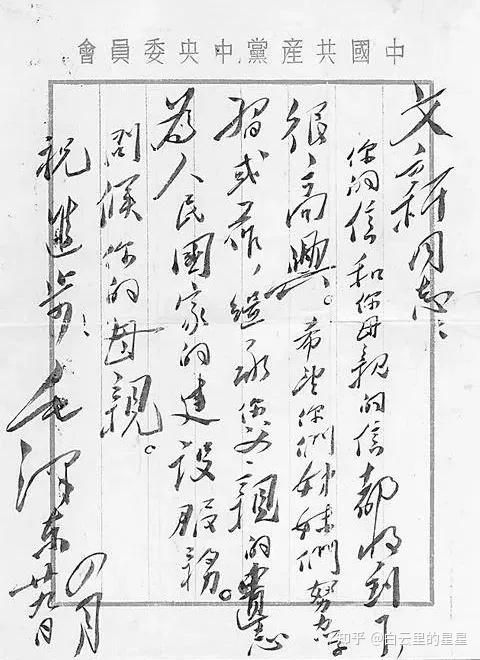 中國共產黨中央委員會
文新同志：
你的信和你母親的信都收到了，
很高興。希望你們姊妹們努力學
習或工作，繼承你父親的遺志
為人民國家的建設服務。
問候你的母親。
祝進步！毛澤東
四月
廿九日
知乎 @白云里的星星